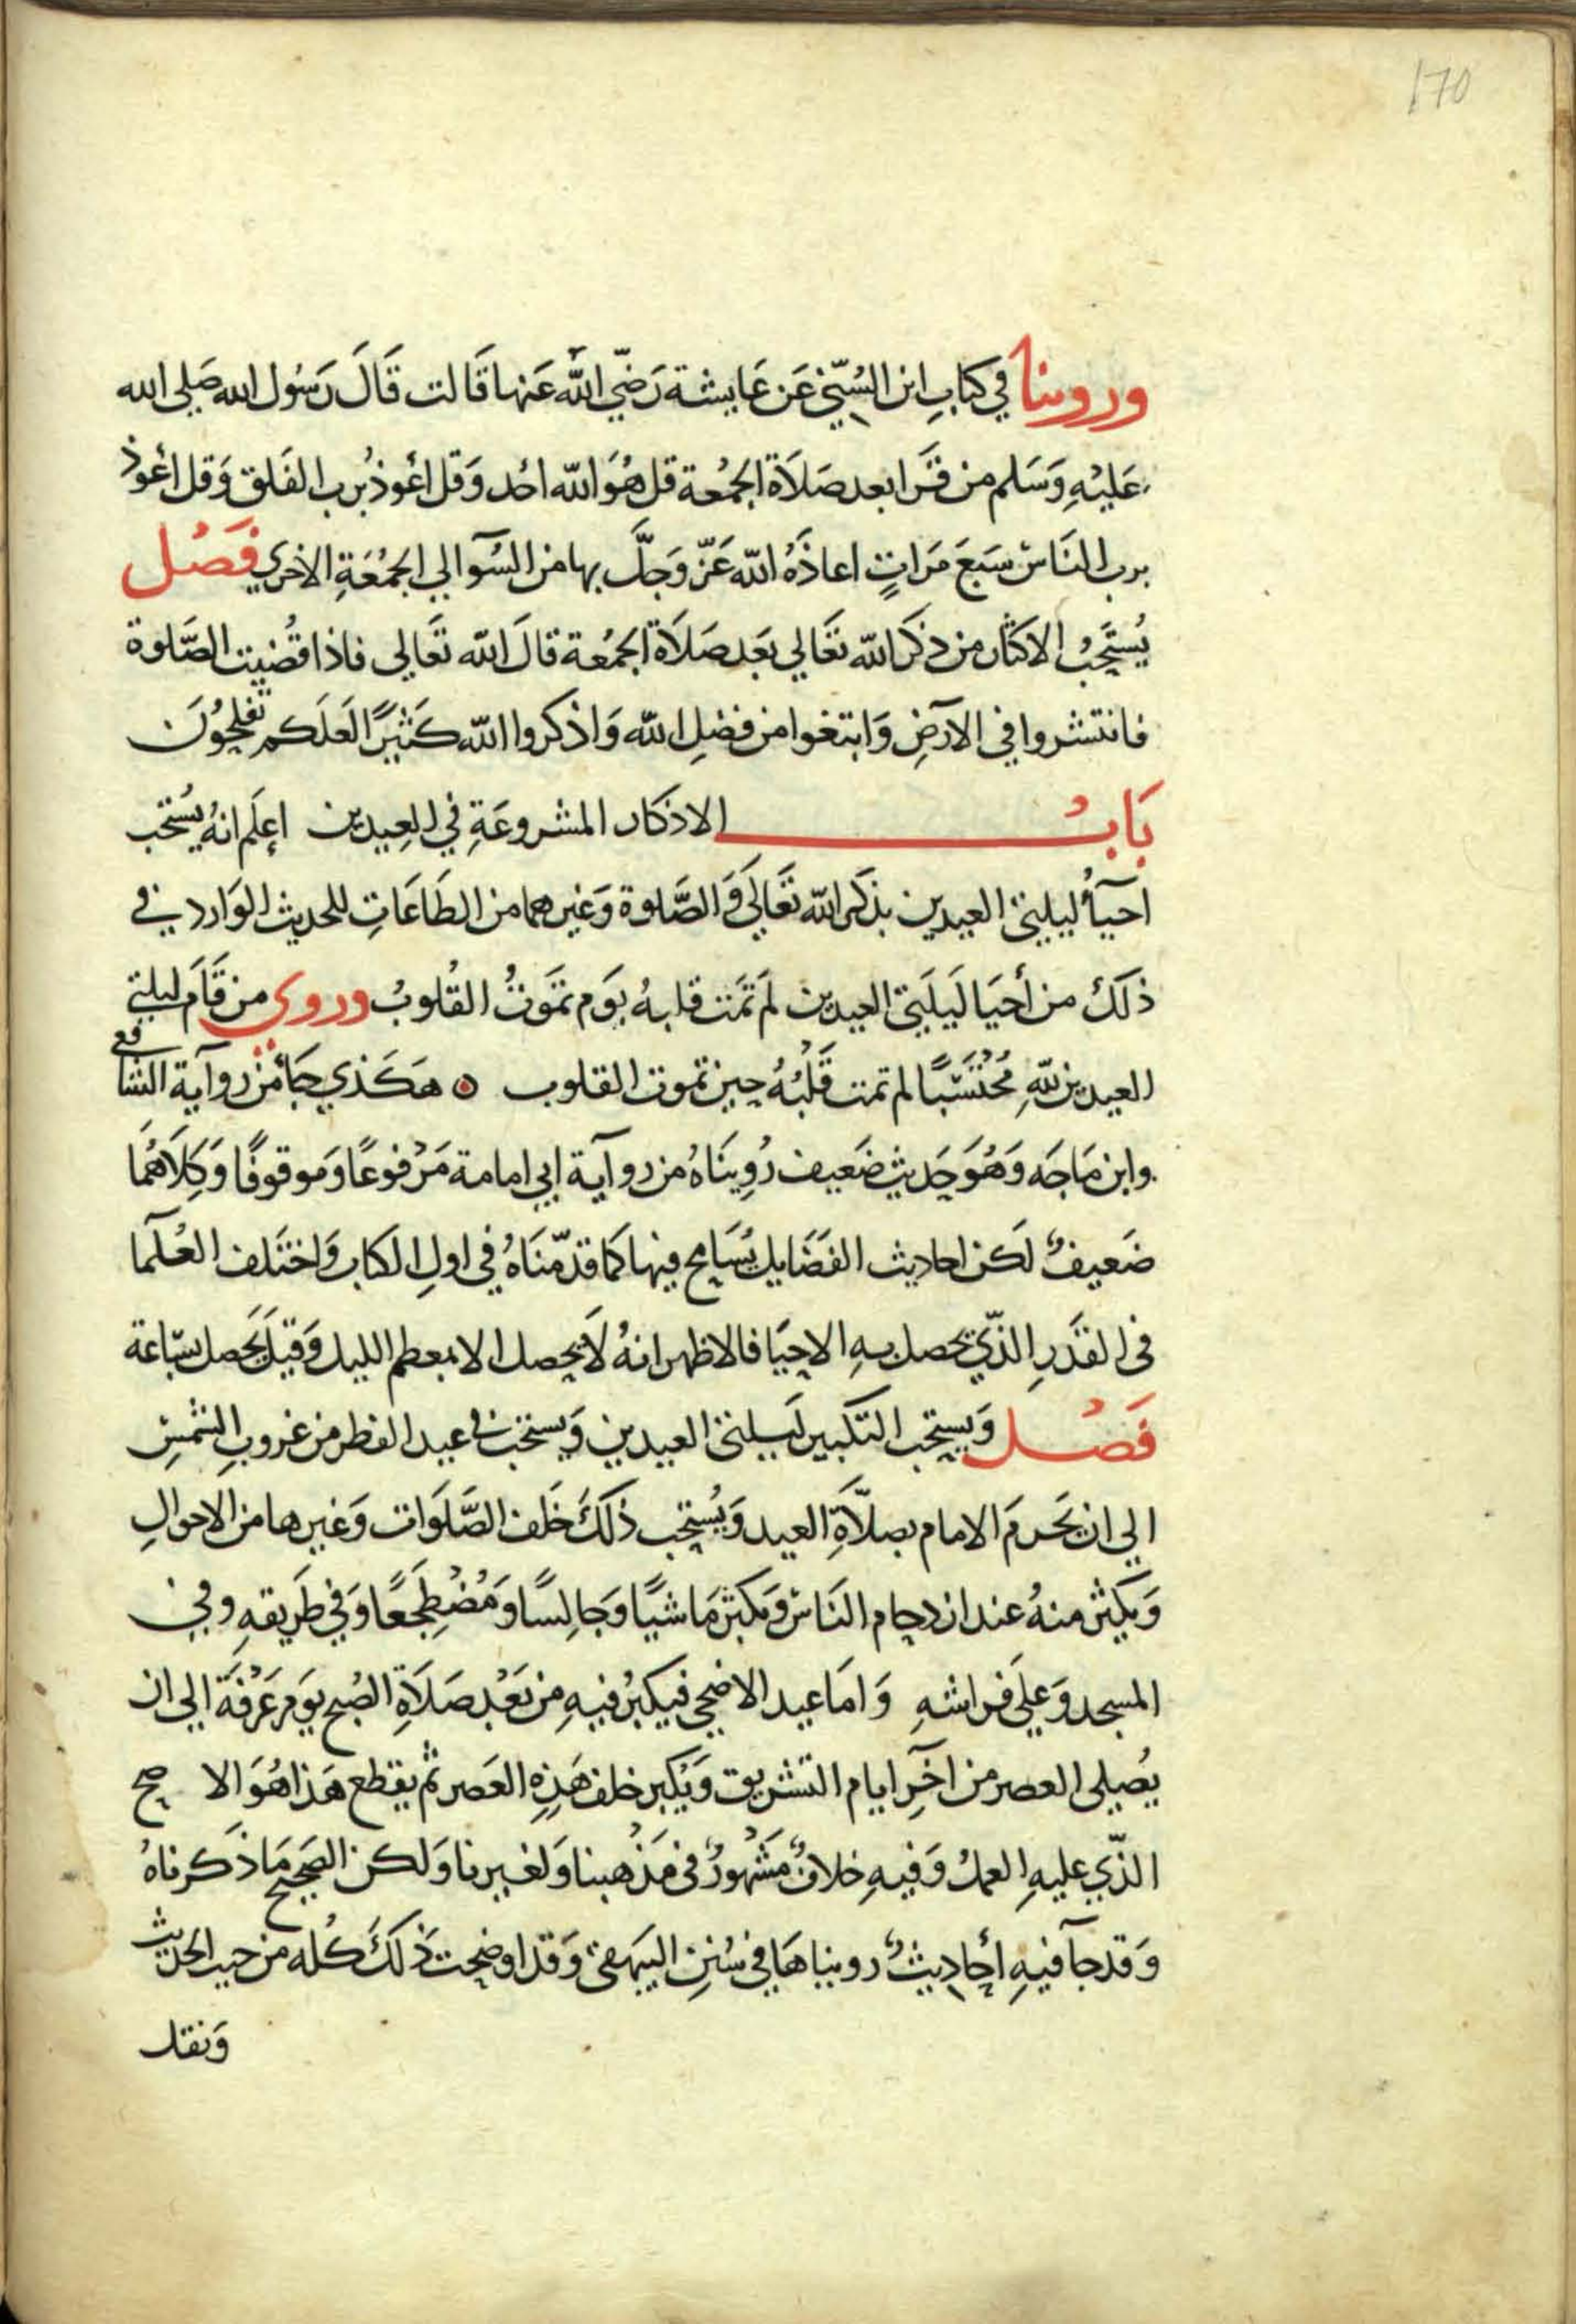 170
وروينا في كتابِ ابن السُنّي عَن عَايشة رَضّي الله عَنها قَالت قَالَ رَسُول الله صَلى الله
عَليْهِ وَسَلم من قَرَا بعد صَلَاة الجمُعة قل هُوَ الله احُد وَقل اعُوذ بُرب الفَلق وَقل اعُوذ
برب النَاس سَبَعَ مَراتٍ اعاذَهُ الله عَزّ وَجَلَّ بها من السُوآ الي الجمُعَةِ الاخري فَصْل
يُستَحِبُ الاكثار من ذكَر الله تعَالي بَعَد صَلَاة الجمُعة قالَ الله تَعَالي فاذا قُضيت الصَّلوة
فانتشروا في الآرَضِ وَابتغوا من فضلِ الله وَاذكروا الله كَثيرًا لَعَلَكم تفلحُونَ
بَابُ الاذكار المشروعَةِ في العِيدين اعلَم انهُ يُستحب
احيآُ ليلتي العيدين بذكَر الله تعَالَي وَالصَّلوة وَغيرهما من الطَاعَاتِ للحديث الوَارد في
ذلَكَ من أحيَا لَيلَتي العيدين لمَ تمَت قلبهُ يوَم تمَوتُ القُلوبُ وروي من قَامَ ليلتي
العيدين للهِ مُحُتَسَبًا لم تمت قَلْبُهُ حِين تموت القلوب ه هَكَذي جَآ من روآية الشافعي
وابن مَاجَه وَهُوَ حَديث ضَعيف رُوِينَاهُ من روآية ابي امامة مَرْفوعًا وَموقوفًا وَكِلَاهُمَا
ضَعيفٌ لَكن احاديث الفَضَايل يُسَامح فيها كمَا قدّمنَاهُ في اولِ الكتاب وَاختَلف العُلَمآ
في القَدَرِ الذّي يحصل بهِ الاحيَا فالاظهر انهُ لَا يحِصل الا بمعظم الليل وَقيلَ يَحَصل بسَاعة
فَصْل وَيستحب التكبير لَيلتي العيدين وَيستحب في عيد الفطر من غروبِ الشمسِ
الي ان يحَرمَ الامام بصلَاَةِ العيد وَيُستحِب ذلَكَ خَلف الصَّلَوَات وَغيرها من الاحوالِ
وَيكثر منهُ عند ازدحِام النَاس وَيكبر مَاشيًا وَجَالِسًا وَمُضْطِجَعًا وَفي طَريقهِ وفي
المسجد وَعلي فَراشهِ وَامَا عيد الاضحي فيكبرُ فيهِ من بَعَدْ صَلَاَةِ الصُبح يوَم عَرْفَةَ الي ان
يُصلي العصر من آخَرِ ايام التشريق وَيُكبر خلف هَذِهِ العَصر ثُم يقطع هَذا هُوَ الا صح
الذّي عليهِ العمل وَفيهِ خلافٌ مَشَهُورٌ في مَذهبنا وَلغيرنا وَلكن الصَحِيح مَا ذَكرناهُ
وَقد جآ فيهِ أحَاديثٌ رويناهَا في سُننِ البيهقي وَقد اوضحِت ذَلكَ كُله من حيث الحديث
وَنقل